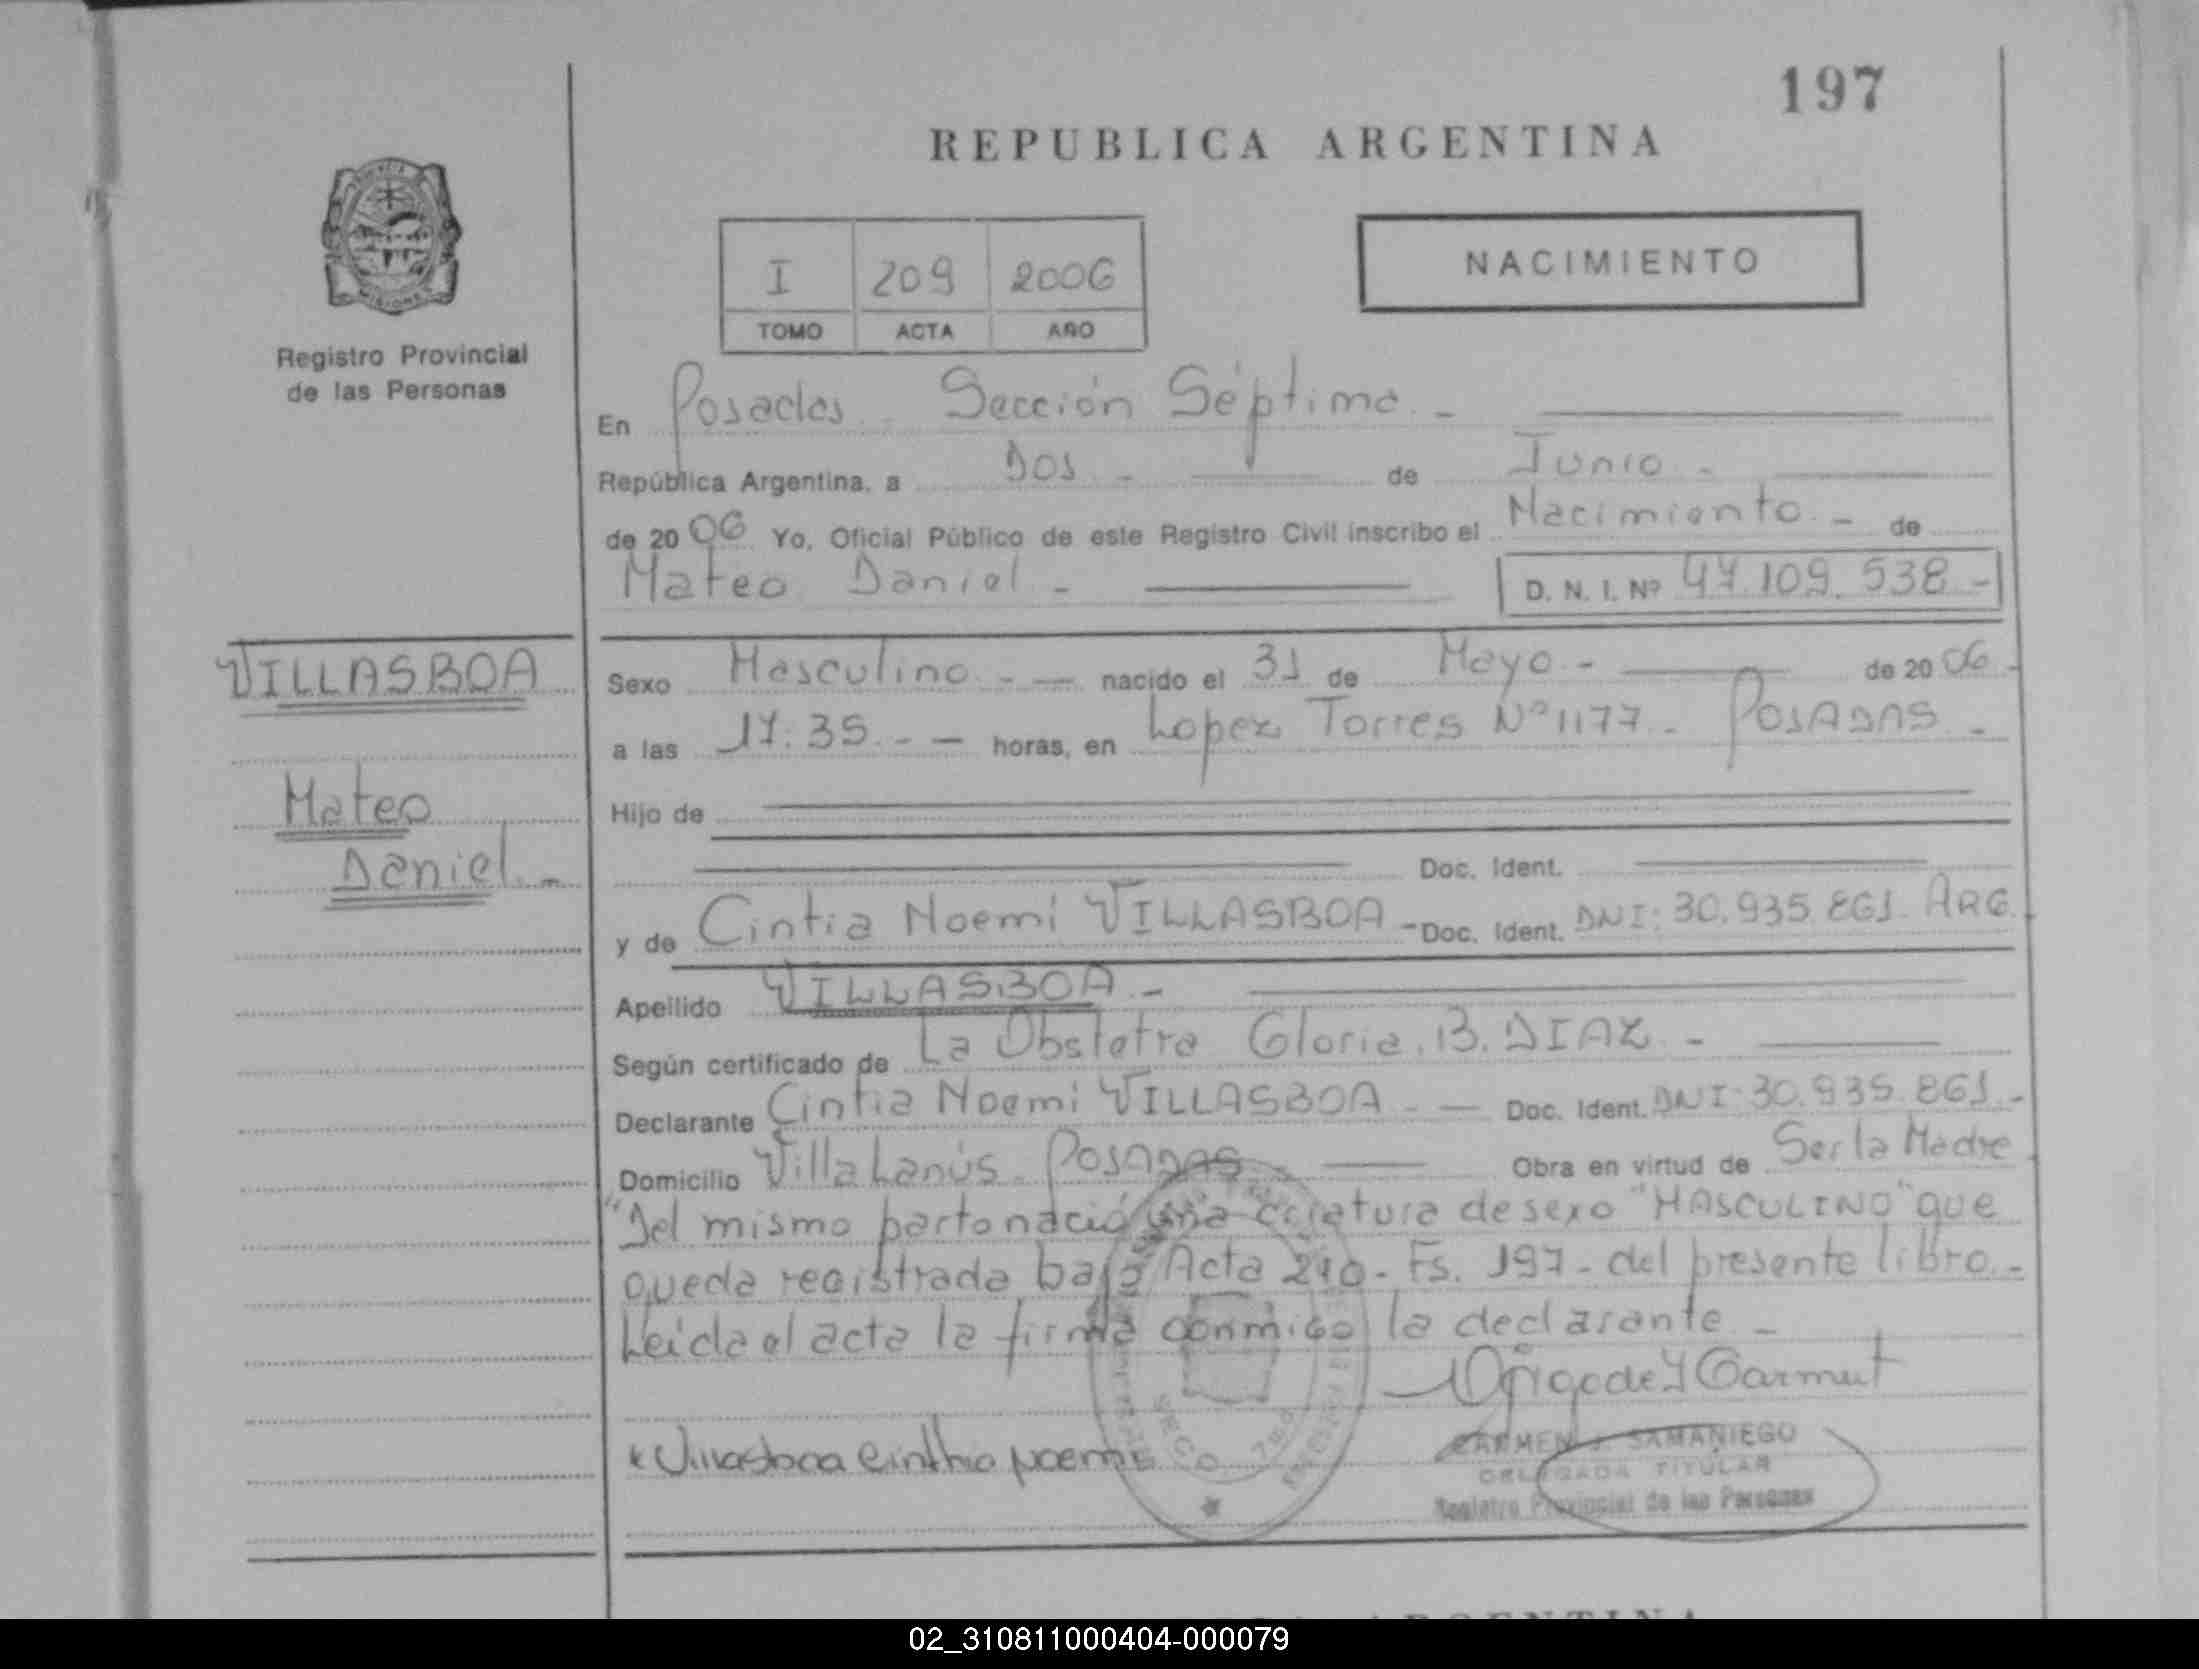 197
REPUBLICA ARGENTINA
I 209 2006
TOMO ACTA AÑO
NACIMIENTO
Registro Provincial
de las Personas
En Posadas - Sección Séptima -
República Argentina, a Dos - de Junio -
de 20 06 Yo, Oficial Público de este Registro Civil inscribo el Nacimiento - de
Mateo Daniel - D. N. I. Nº 47.109.538 -
VILLASBOA
Mateo
Daniel. -
Sexo Masculino - - nacido el 31 de Mayo - de 20 06 -
a las 17:35 - - horas, en Lopez Torres Nº 1177 - POSADAS -
Hijo de
Doc. Ident.
y de Cintia Noemi VILLASBOA - Doc. Ident. DNI: 30.935.861. ARG.
Apellido VILLASBOA -
Según certificado de La Obstetra Gloria. B. DIAZ -
Declarante Cintia Noemi VILLASBOA - - Doc. Ident. DNI: 30.935.861 -
Domicilio Villa Lanús - POSADAS - Obra en virtud de Ser la Madre
"Del mismo parto nació una criatura de sexo "MASCULINO" que
queda registrada bajo Acta 210 - Fs. 197 - del presente libro -
Leida el acta la firma conmigo la declarante -
Villasboa Cinthia Noemi
CARMEN J. SAMANIEGO
DELEGADA TITULAR
Registro Provincial de las Personas
ARGENTINA
02_310811000404-000079